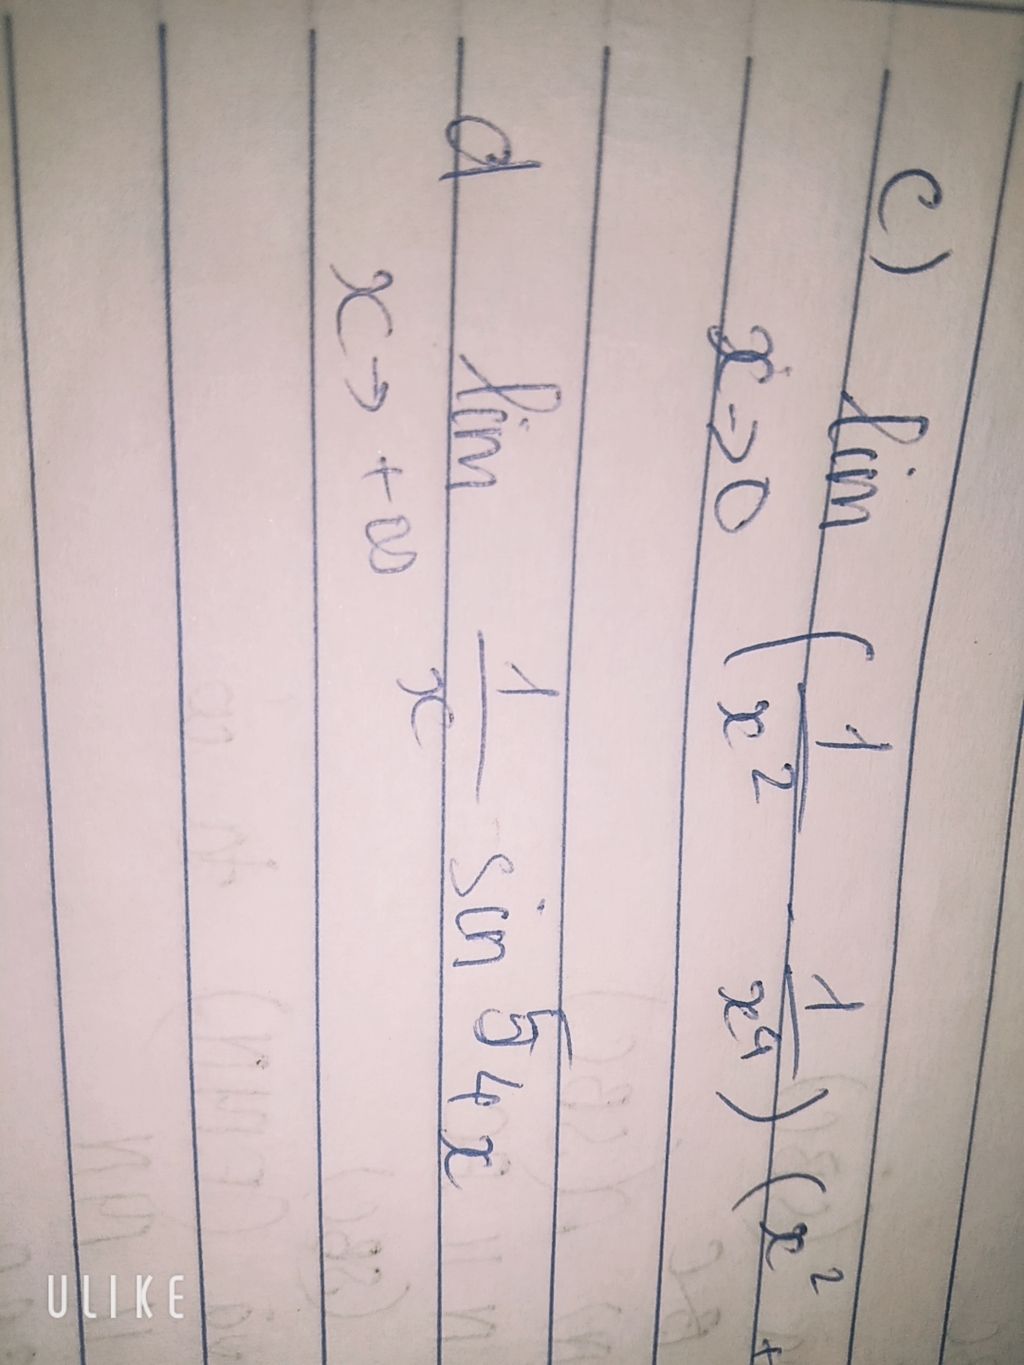 c) lim (1/x² - 1/x⁴) (x² +
x→0
d lim 1/x sin⁵ 4x
x→ +∞
ULIKE